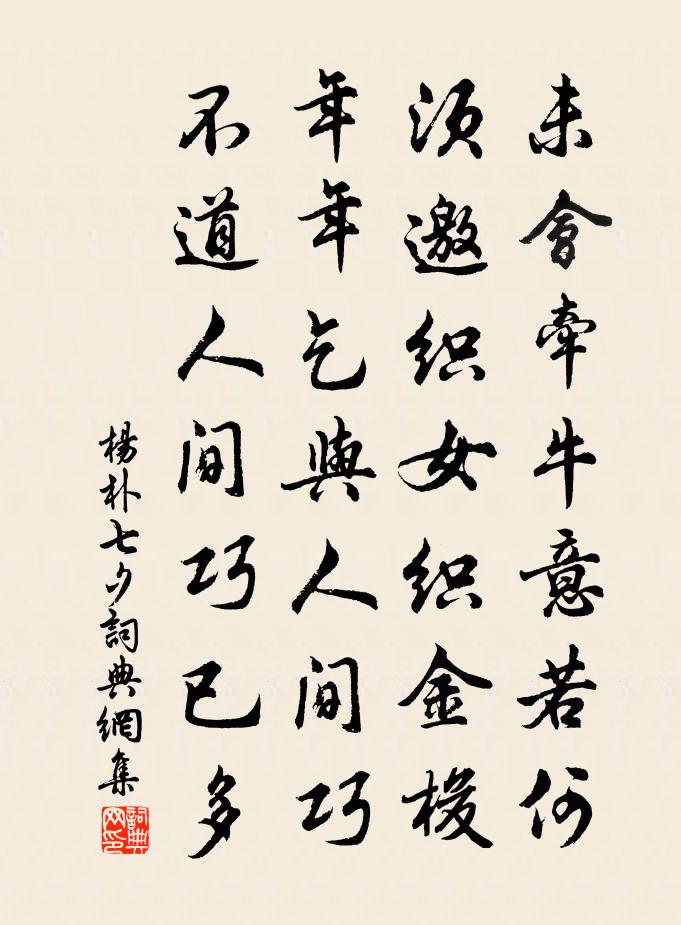 未會牽牛意若何
須邀织女织金梭
年年乞與人間巧
不道人間巧已多
楊朴七夕詞典網集
詞典网印